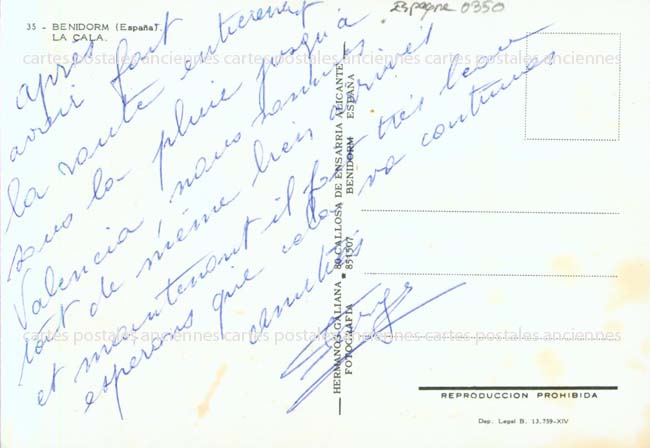 35 - BENIDORM (España).
LA CALA.
Espagne 0350
après
avoir fait
la route entièrement
sous la pluie jusqu'à
Valencia, nous sommes
tout de même bien arrivés
et maintenant il fait très beau
esperons que cela va continuer
amitiés
HERMANOS GALIANA - 80 CALLOSA DE ENSARRIA ALICANTE
FOTOGRAFIA * 851507 BENIDORM ESPAÑA
cartes postales anciennes cartes postales anciennes cartes postales anciennes
cartes postales anciennes cartes postales anciennes cartes postales anciennes
cartes postales anciennes cartes postales anciennes cartes postales anciennes
REPRODUCCION PROHIBIDA
Dep. Legal B. 13.759-XIV